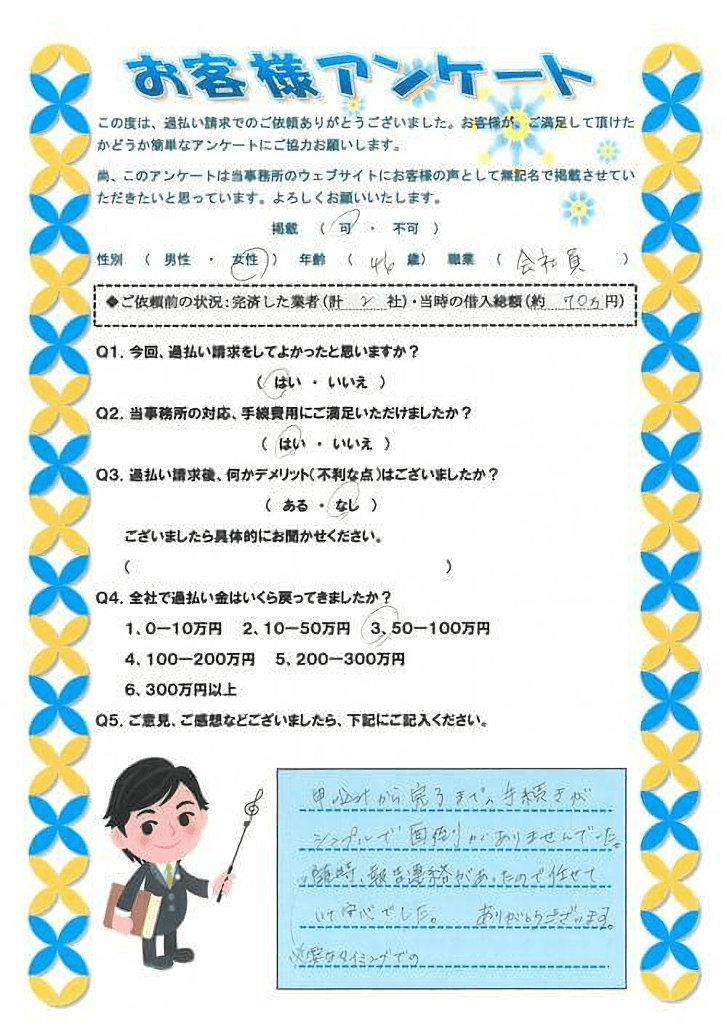 お客様アンケート
この度は、過払い請求でのご依頼ありがとうございました。お客様が、ご満足して頂けた
かどうか簡単なアンケートにご協力お願いします。
尚、このアンケートは当事務所のウェブサイトにお客様の声として無記名で掲載させてい
ただきたいと思っています。よろしくお願いいたします。
掲載 （ 可 ・ 不可 ）
性別 （ 男性 ・ 女性 ） 年齢 （ 46 歳） 職業 （ 会社員 ）
◆ご依頼前の状況：完済した業者（計 2 社）・当時の借入総額（約 70万円）
Q1. 今回、過払い請求をしてよかったと思いますか？
（ はい ・ いいえ ）
Q2. 当事務所の対応、手続費用にご満足いただけましたか？
（ はい ・ いいえ ）
Q3. 過払い請求後、何かデメリット（不利な点）はございましたか？
（ ある ・ なし ）
ございましたら具体的にお聞かせください。
（ ）
Q4. 全社で過払い金はいくら戻ってきましたか？
1、0－10万円 2、10－50万円 3、50－100万円
4、100－200万円 5、200－300万円
6、300万円以上
Q5. ご意見、ご感想などございましたら、下記にご記入ください。
申込みから完了までの手続きが
シンプルで面倒がありませんでした。
随時、報告連絡があったので任せて
いて安心でした。 ありがとうございます。
必要なタイミングでの